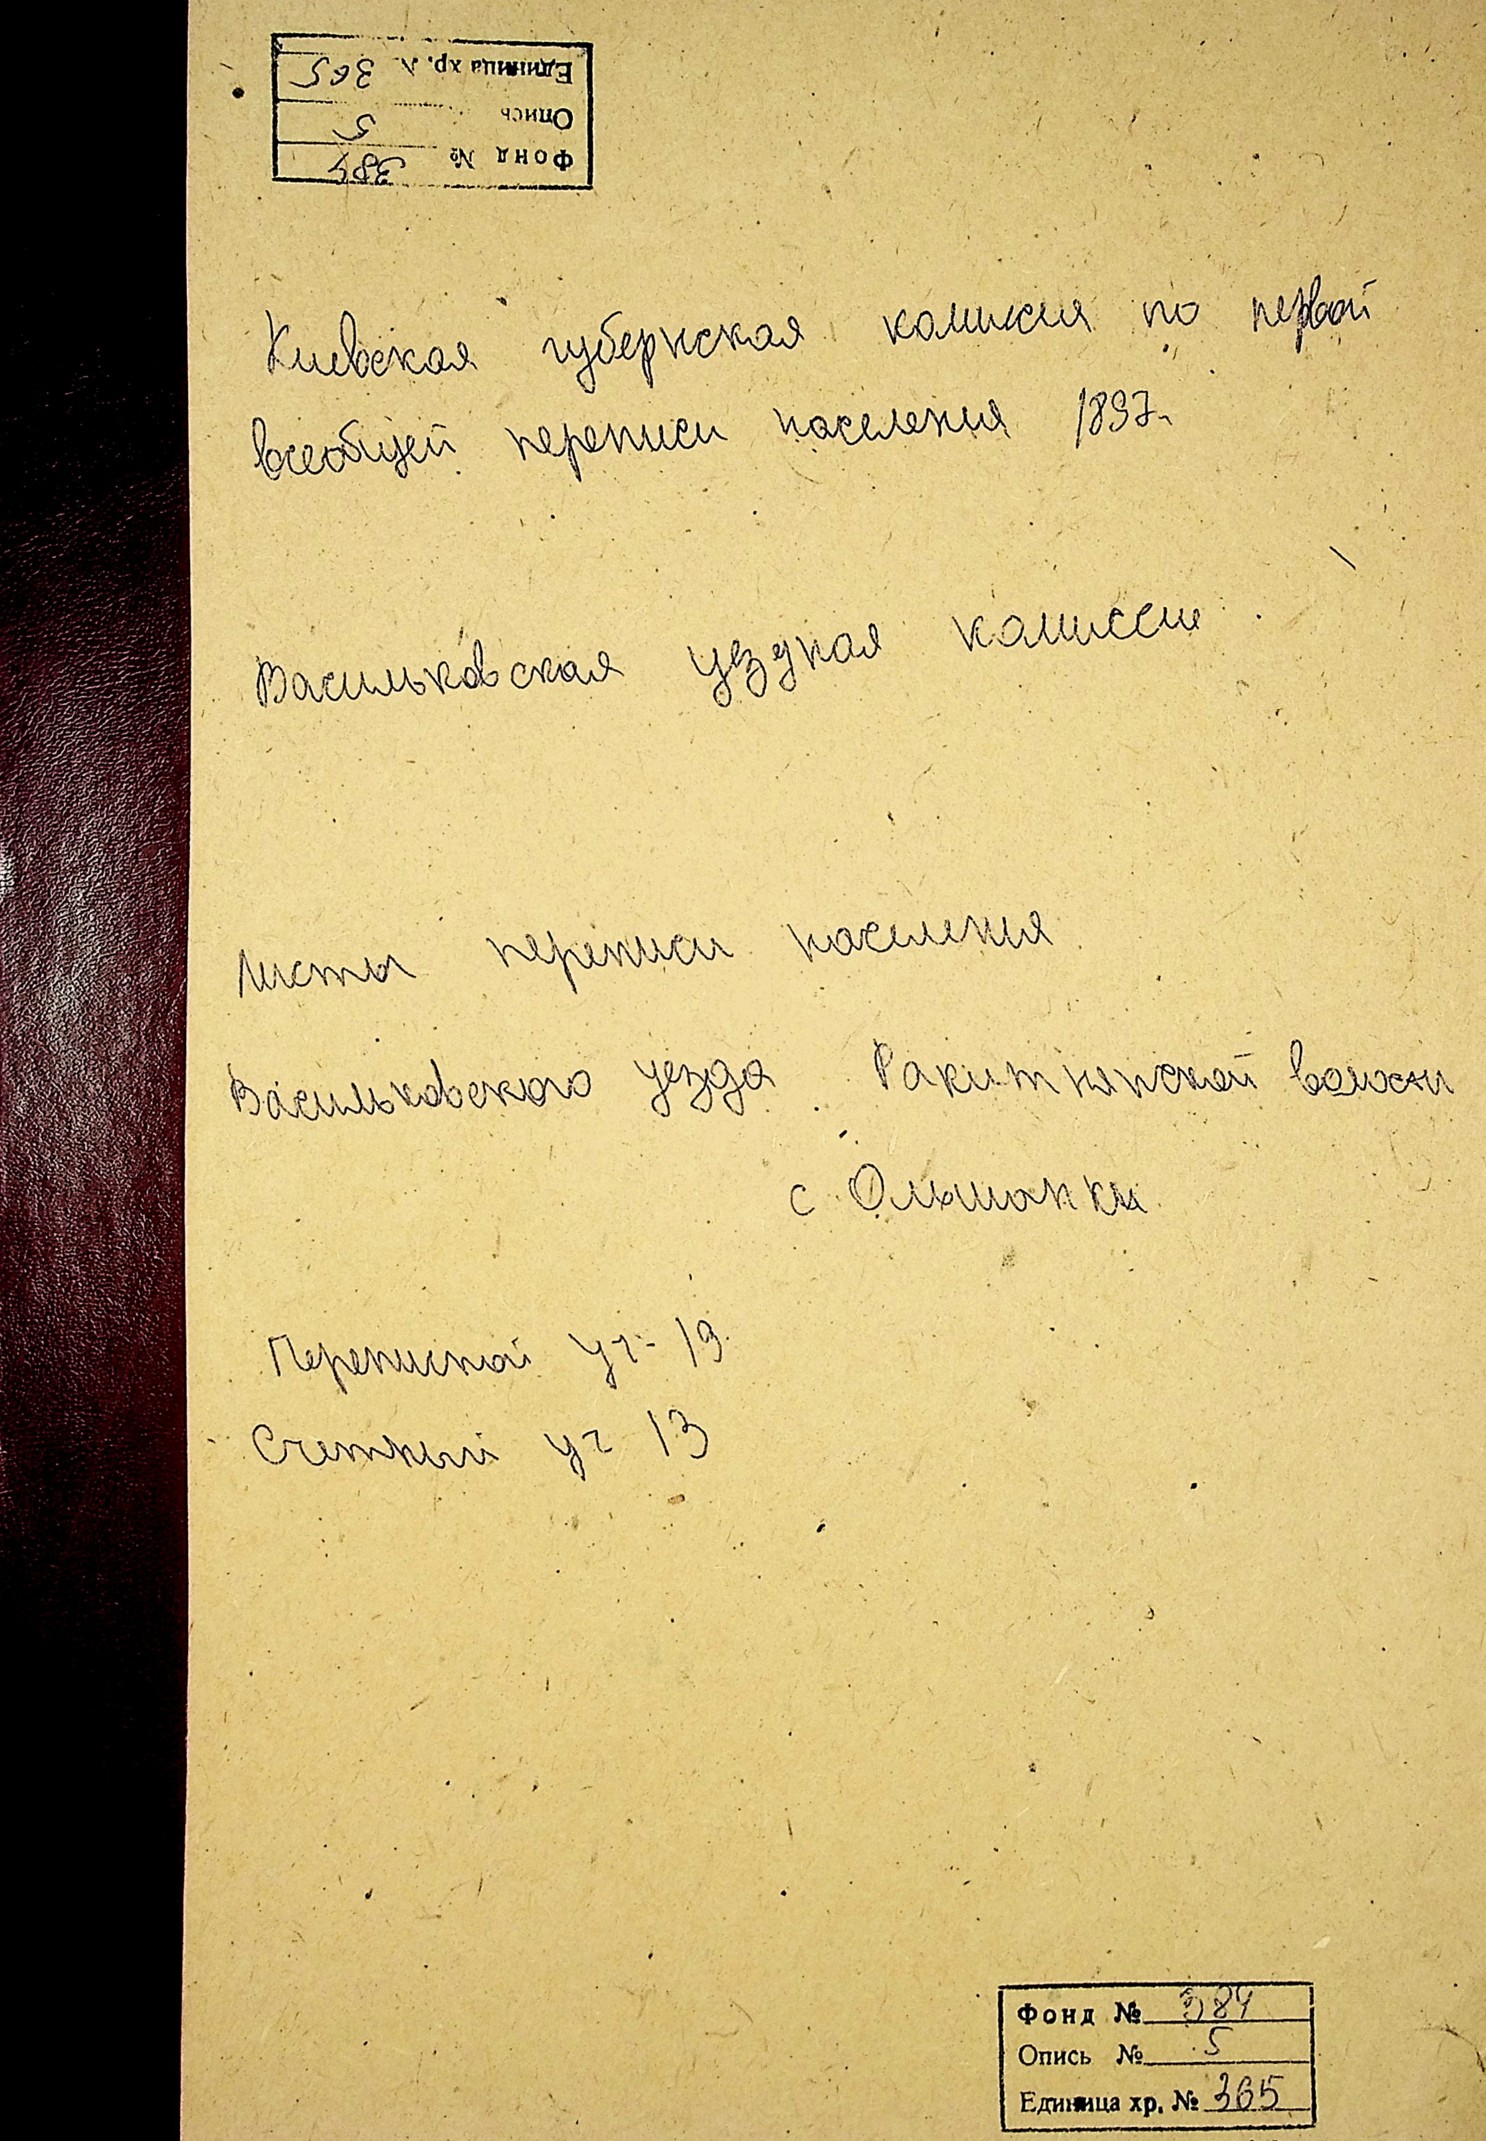 Единица хр. № 365
Опись 5
Фонд № 384
Киевская губернская комиссия по первой
всеобщей переписи населения 1897г.
Васильковская уездная комиссия
Листы переписи населения
Васильковского уезда Ракитнянской волости
с Ольшанки
Переписной уч. 19
Счетный уч 13
Фонд № 384
Опись № 5
Единица хр. № 365